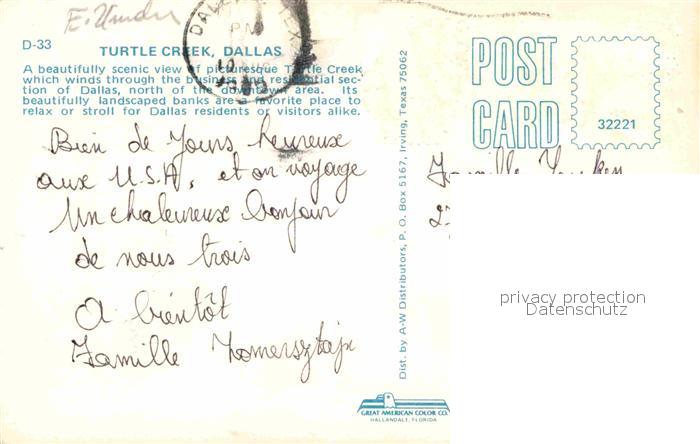 D-33
TURTLE CREEK, DALLAS
A beautifully scenic view of picturesque Turtle Creek
which winds through the business and residential sec-
tion of Dallas, north of the downtown area. Its
beautifully landscaped banks are a favorite place to
relax or stroll for Dallas residents or visitors alike.
Bien de jours heureux
aux U.S.A, et on voyage
Un chaleureux bonjour
de nous trois
A bientôt
Famille
Dist. by A-W Distributors, P. O. Box 5167, Irving, Texas 75062
POST
CARD
32221
Famille
privacy protection
Datenschutz
GREAT AMERICAN COLOR CO.
HALLANDALE, FLORIDA